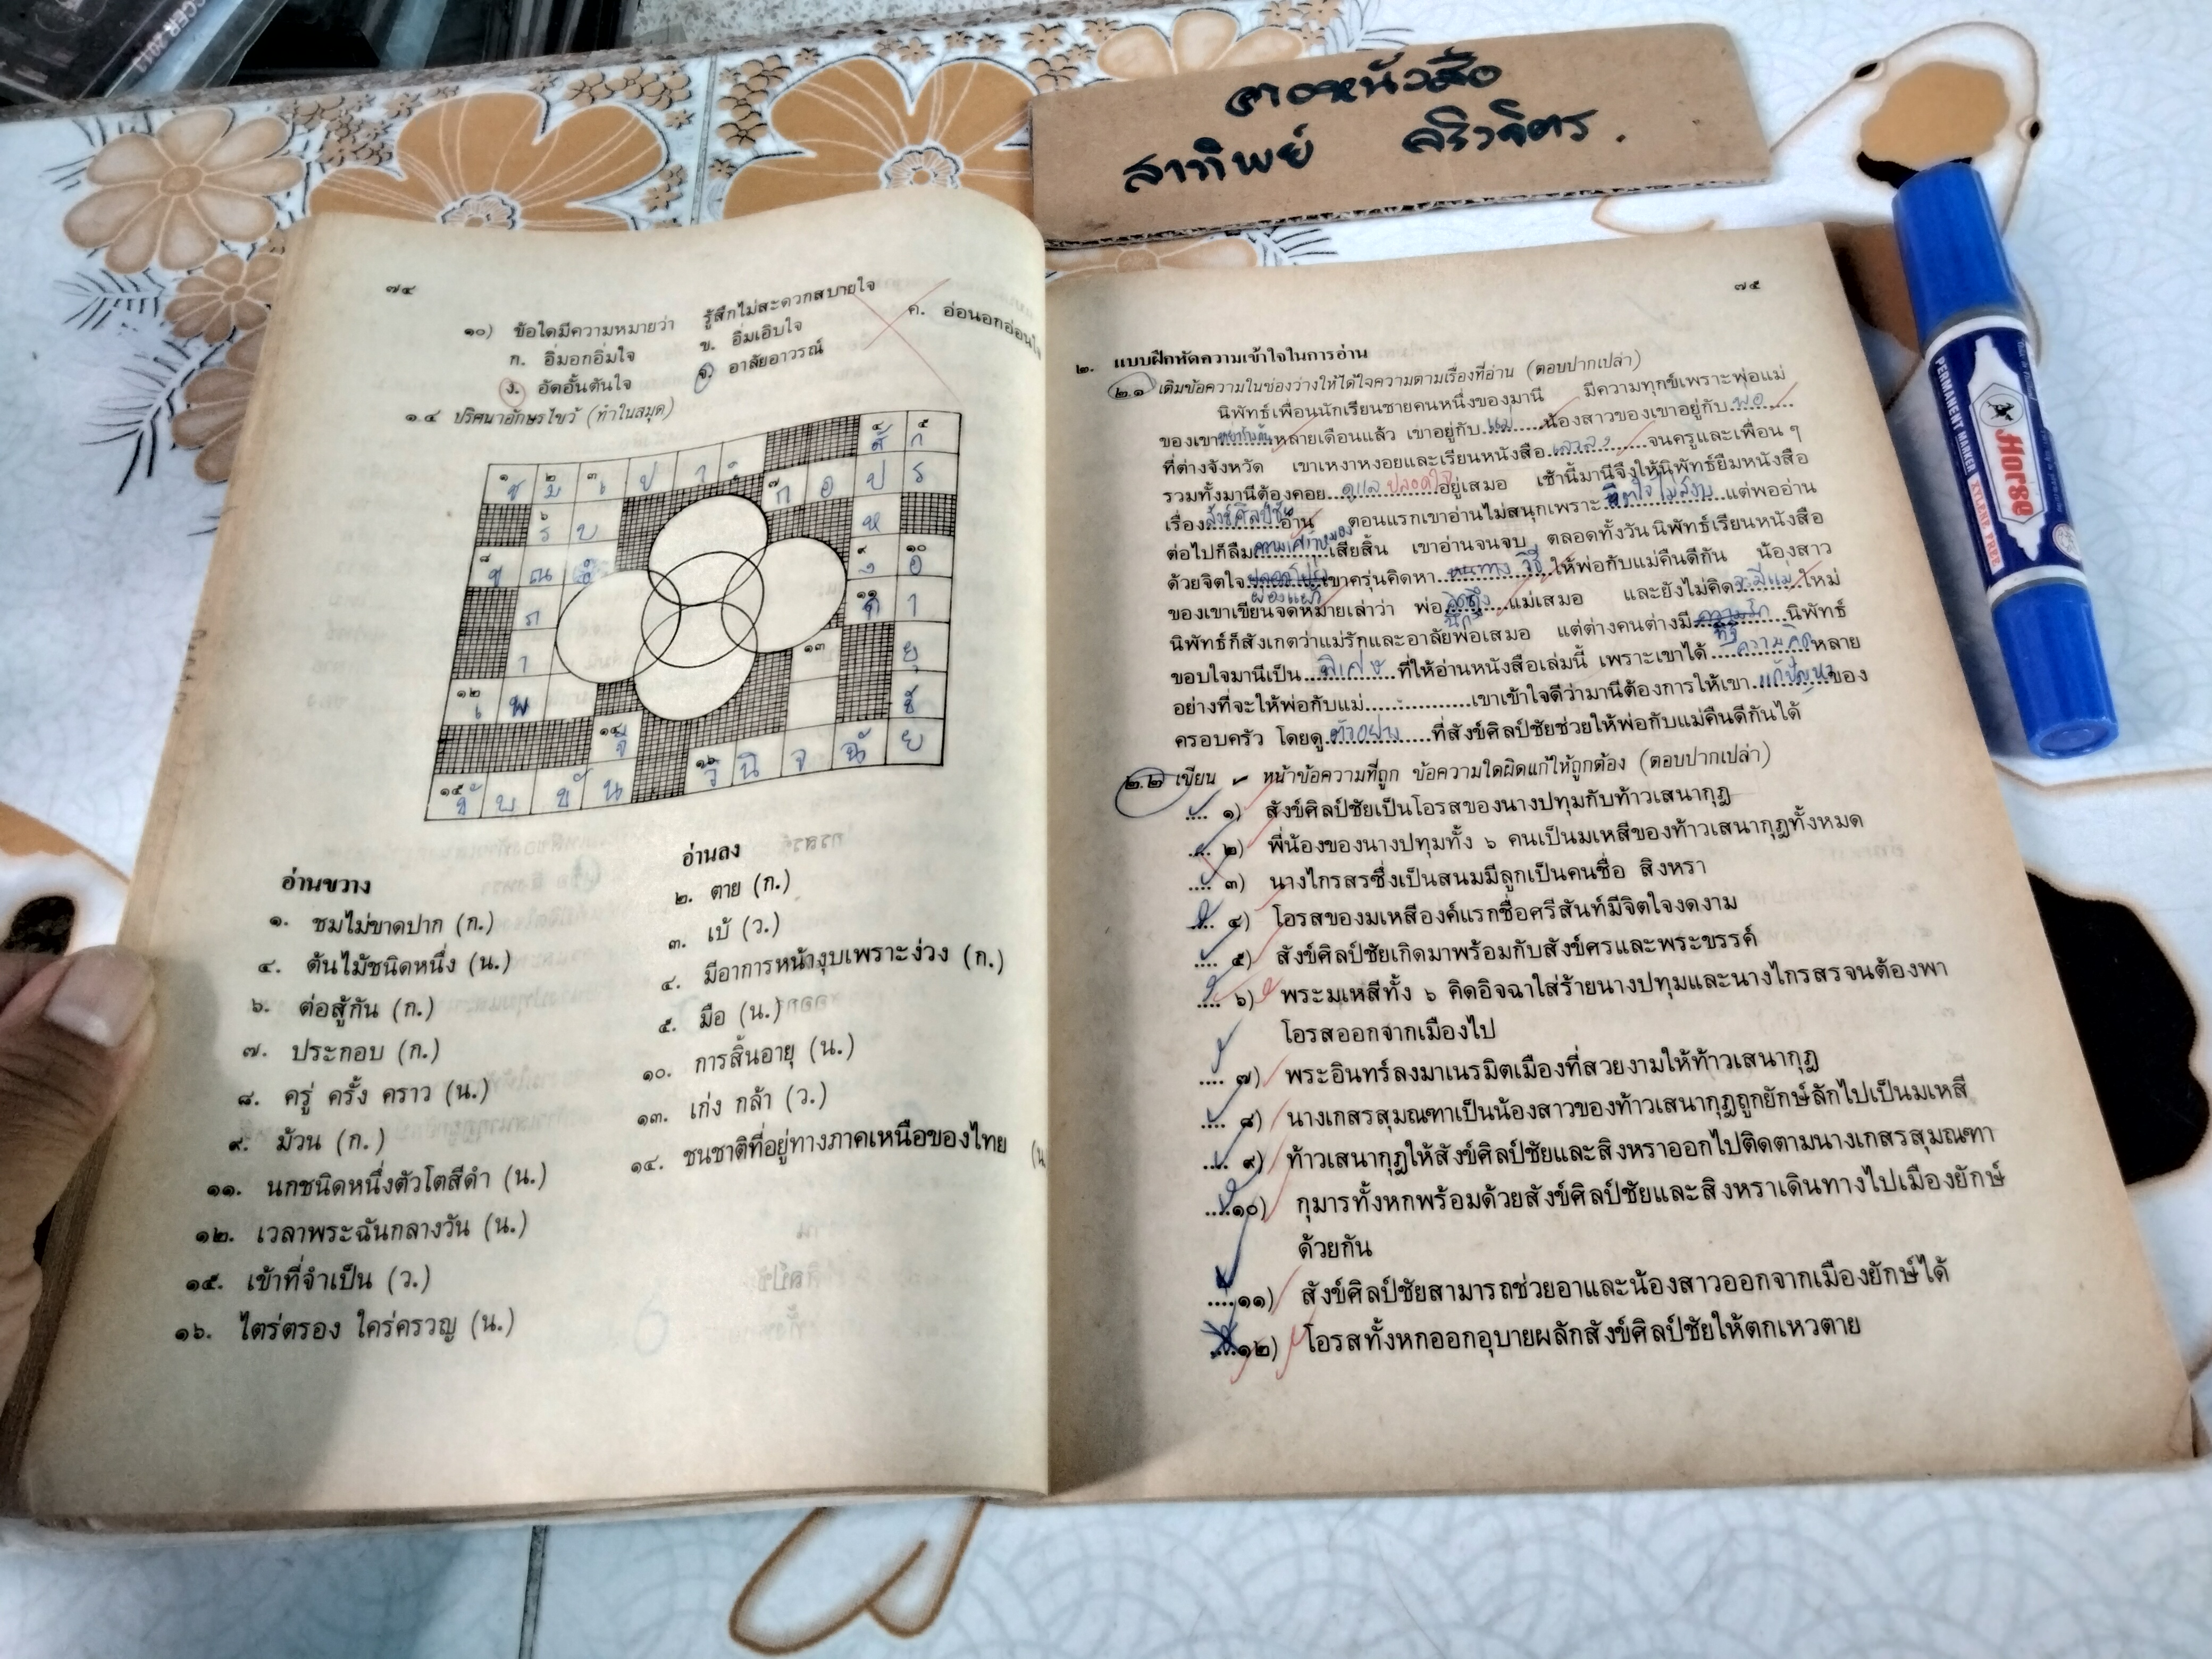 CCER 2011
จางหนังสือ
สาทิพย์
๗๔
๑๐) ข้อใดมีความหมายว่า รู้สึกไม่สะดวกสบายใจ
ก. อิ่มอกอิ่มใจ ข. อิ่มเอิบใจ ค. อ่อนอกอ่อนใจ
ง. อัดอั้นตันใจ จ. อาลัยอาวรณ์
๑.๔ ปริศนาอักษรไขว้ (ทำในสมุด)
อ่านขวาง
๑. ชมไม่ขาดปาก (ก.)
๔. ต้นไม้ชนิดหนึ่ง (น.)
๖. ต่อสู้กัน (ก.)
๗. ประกอบ (ก.)
๘. ครู่ ครั้ง คราว (น.)
๙. ม้วน (ก.)
๑๑. นกชนิดหนึ่งตัวโตสีดำ (น.)
๑๒. เวลาพระฉันกลางวัน (น.)
๑๕. เข้าที่จำเป็น (ว.)
๑๖. ไตร่ตรอง ใคร่ครวญ (น.)
อ่านลง
๒. ตาย (ก.)
๓. เบ้ (ว.)
๔. มีอาการหน้างุบเพราะง่วง (ก.)
๕. มือ (น.)
๑๐. การสิ้นอายุ (น.)
๑๓. เก่ง กล้า (ว.)
๑๔. ชนชาติที่อยู่ทางภาคเหนือของไทย (น
๗๕
๒. แบบฝึกหัดความเข้าใจในการอ่าน
๒.๑ เติมข้อความในช่องว่างให้ได้ใจความตามเรื่องที่อ่าน (ตอบปากเปล่า)
นิพัทธ์เพื่อนนักเรียนชายคนหนึ่งของมานี มีความทุกข์เพราะพ่อแม่
ของเขา หลายเดือนแล้ว เขาอยู่กับ..แม่.....น้องสาวของเขาอยู่กับ..พ่อ....
ที่ต่างจังหวัด เขาเหงาหงอยและเรียนหนังสือ..เลวลง......จนครูและเพื่อน ๆ
รวมทั้งมานีต้องคอย..ดูแล ปลอบใจ..อยู่เสมอ เช้านี้มานีจึงให้นิพัทธ์ยืมหนังสือ
เรื่อง สังข์ศิลป์ชัย อ่าน ตอนแรกเขาอ่านไม่สนุกเพราะ จิตใจไม่สงบ..แต่พออ่าน
ต่อไปก็ลืม ความเศร้าหมอง เสียสิ้น เขาอ่านจนจบ ตลอดทั้งวัน นิพัทธ์เรียนหนังสือ
ด้วยจิตใจ ผ่องแผ้ว เขาครุ่นคิดหา..หนทาง วิธี..ให้พ่อกับแม่คืนดีกัน น้องสาว
ของเขาเขียนจดหมายเล่าว่า พ่อ คิดถึง....แม่เสมอ และยังไม่คิด จะมีแม่ ใหม่
นิพัทธ์ก็สังเกตว่าแม่รักและอาลัยพ่อเสมอ แต่ต่างคนต่างมี ทิฐิ นิพัทธ์
ขอบใจมานีเป็น ..พิเศษ....ที่ให้อ่านหนังสือเล่มนี้ เพราะเขาได้ ..ความคิด..หลาย
อย่างที่จะให้พ่อกับแม่.................เขาเข้าใจดีว่ามานีต้องการให้เขา..แก้ปัญหา..ของ
ครอบครัว โดยดู ตัวอย่าง.....ที่สังข์ศิลป์ชัยช่วยให้พ่อกับแม่คืนดีกันได้
๒.๒ เขียน ✓ หน้าข้อความที่ถูก ข้อความใดผิดแก้ให้ถูกต้อง (ตอบปากเปล่า)
.... ๑) สังข์ศิลป์ชัยเป็นโอรสของนางปทุมกับท้าวเสนากุฎ
.... ๒) พี่น้องของนางปทุมทั้ง ๖ คนเป็นมเหสีของท้าวเสนากุฎทั้งหมด
.... ๓) นางไกรสรซึ่งเป็นสนมมีลูกเป็นคนชื่อ สิงหรา
.... ๔) โอรสของมเหสีองค์แรกชื่อศรีสันท์มีจิตใจงดงาม
.... ๕) สังข์ศิลป์ชัยเกิดมาพร้อมกับสังข์ศรและพระขรรค์
.... ๖) พระมเหสีทั้ง ๖ คิดอิจฉาใส่ร้ายนางปทุมและนางไกรสรจนต้องพา
โอรสออกจากเมืองไป
.... ๗) พระอินทร์ลงมาเนรมิตเมืองที่สวยงามให้ท้าวเสนากุฎ
.... ๘) นางเกสรสุมณฑาเป็นน้องสาวของท้าวเสนากุฎถูกยักษ์ลักไปเป็นมเหสี
.... ๙) ท้าวเสนากุฎให้สังข์ศิลป์ชัยและสิงหราออกไปติดตามนางเกสรสุมณฑา
....๑๐) กุมารทั้งหกพร้อมด้วยสังข์ศิลป์ชัยและสิงหราเดินทางไปเมืองยักษ์
ด้วยกัน
....๑๑) สังข์ศิลป์ชัยสามารถช่วยอาและน้องสาวออกจากเมืองยักษ์ได้
....๑๒) โอรสทั้งหกออกอุบายผลักสังข์ศิลป์ชัยให้ตกเหวตาย
PERMANENT MARKER XYLENE FREE
Horse